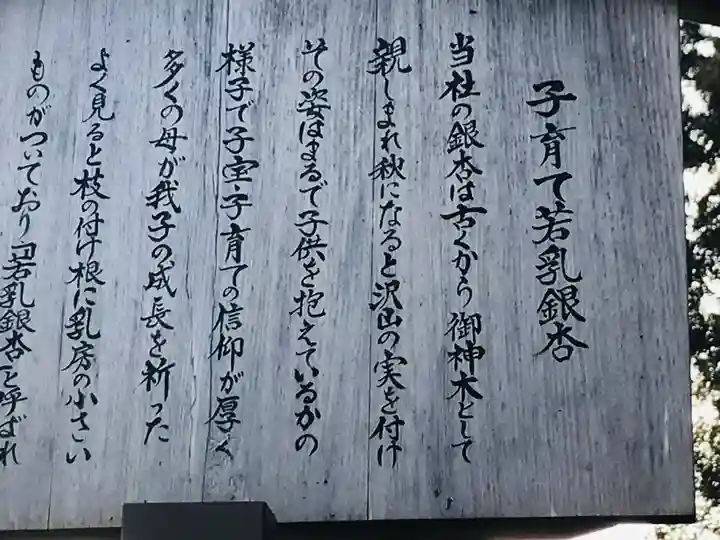 子育て若乳銀杏
当社の銀杏は古くから御神木として
親しまれ秋になると沢山の実を付け
その姿はまるで子供を抱えているかの
様子で子宝・子育ての信仰が厚く
多くの母が我子の成長を祈った
よく見ると枝の付け根に乳房の小さい
ものがついており「若乳銀杏」と呼ばれ